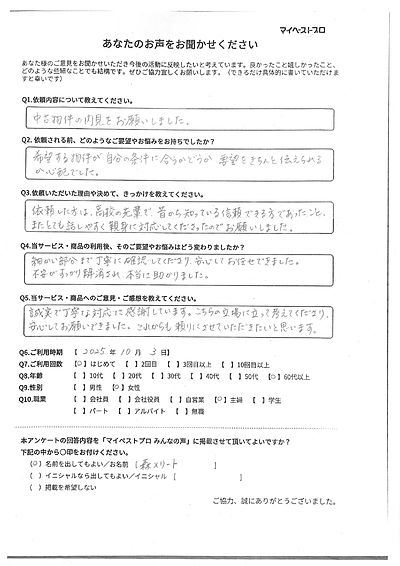 マイベストプロ
あなたのお声をお聞かせください
あなた様のご意見をお聞かせいただき今後の活動に反映したいと考えています。良かったこと嬉しかったこと、
どのような些細なことでも結構です。ぜひご協力宜しくお願いします。（できるだけ具体的に書いていただけま
すと幸いです）
Q1.依頼内容について教えてください。
中古物件の内見をお願いしました。
Q2.依頼される前、どのようなご要望やお悩みをお持ちでしたか？
希望する物件が自分の条件に合うかどうか 要望をきちんと伝えられる
か心配でした。
Q3.依頼いただいた理由や決めて、きっかけを教えてください。
依頼した方は、高校の先輩で、昔から知っている信頼できる方であったこと、
またとても話しやすく親身に対応してくださったのでお願いしました。
Q4.当サービス・商品の利用後、そのご要望やお悩みはどう変わりましたか？
細かい部分まで丁寧に確認してくださり、安心してお任せできました。
不安がすっかり解消され、本当に助かりました。
Q5.当サービス・商品へのご意見・ご感想を教えてください。
誠実で丁寧な対応に感謝しています。こちらの立場に立って考えてくださり、
安心してお願いできました。これからも頼りにさせていただきたいと思います。
Q6.ご利用時期 【 2025年 10月 3日】
Q7.ご利用回数 【○】はじめて 【 】2回目 【 】3回目以上 【 】10回目以上
Q8.年齢 【 】10代 【 】20代 【 】30代 【 】40代 【 】50代 【○】60代以上
Q9.性別 【 】男性 【○】女性
Q10.職業 【 】会社員 【 】会社役員 【 】自営業 【○】主婦 【 】学生
【 】パート 【 】アルバイト 【 】無職
本アンケートの回答内容を「マイベストプロ みんなの声」に掲載させて頂いてよいですか？
下記の中から〇印をお付けください。
（○）名前を出してもよい/お名前 [ 森メリート ]
（ ）イニシャルなら出してもよい/イニシャル [ ]
（ ）掲載を希望しない
ご協力、誠にありがとうございました。